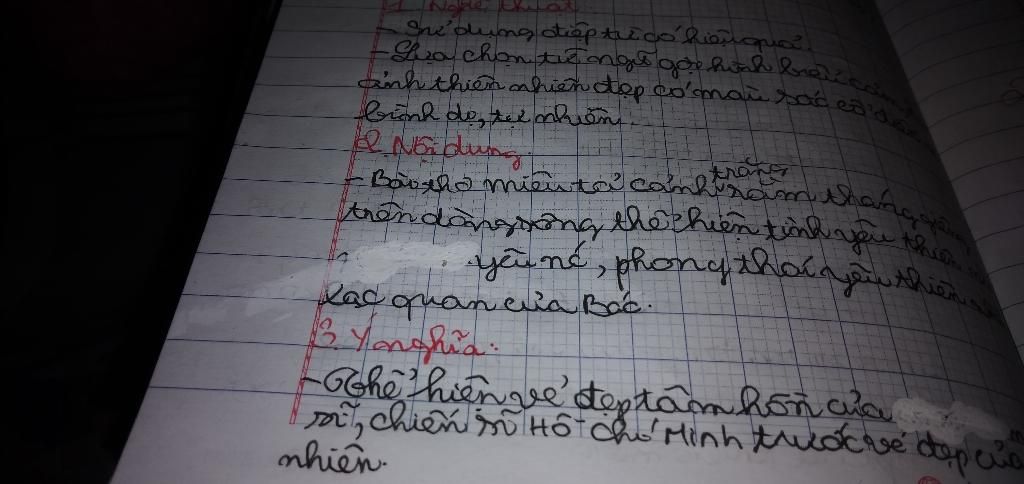 1 Nghệ thuật
- Sử dụng điệp từ có hiệu quả.
- Lựa chọn từ ngữ gợi hình
cảnh thiên nhiên đẹp có màu sắc cổ
bình dị, tự nhiên.
2. Nội dung
- Bài thơ miêu tả cảnh trăng rằm tháng giêng
trên dòng sông, thể hiện tình yêu thiên
yêu nc, phong thái yêu thiên
Lạc quan của Bác.
3 Ý nghĩa.
- Thể hiện vẻ đẹp tâm hồn của
sĩ, chiến sĩ Hồ Chí Minh trước vẻ đẹp của
nhiên.